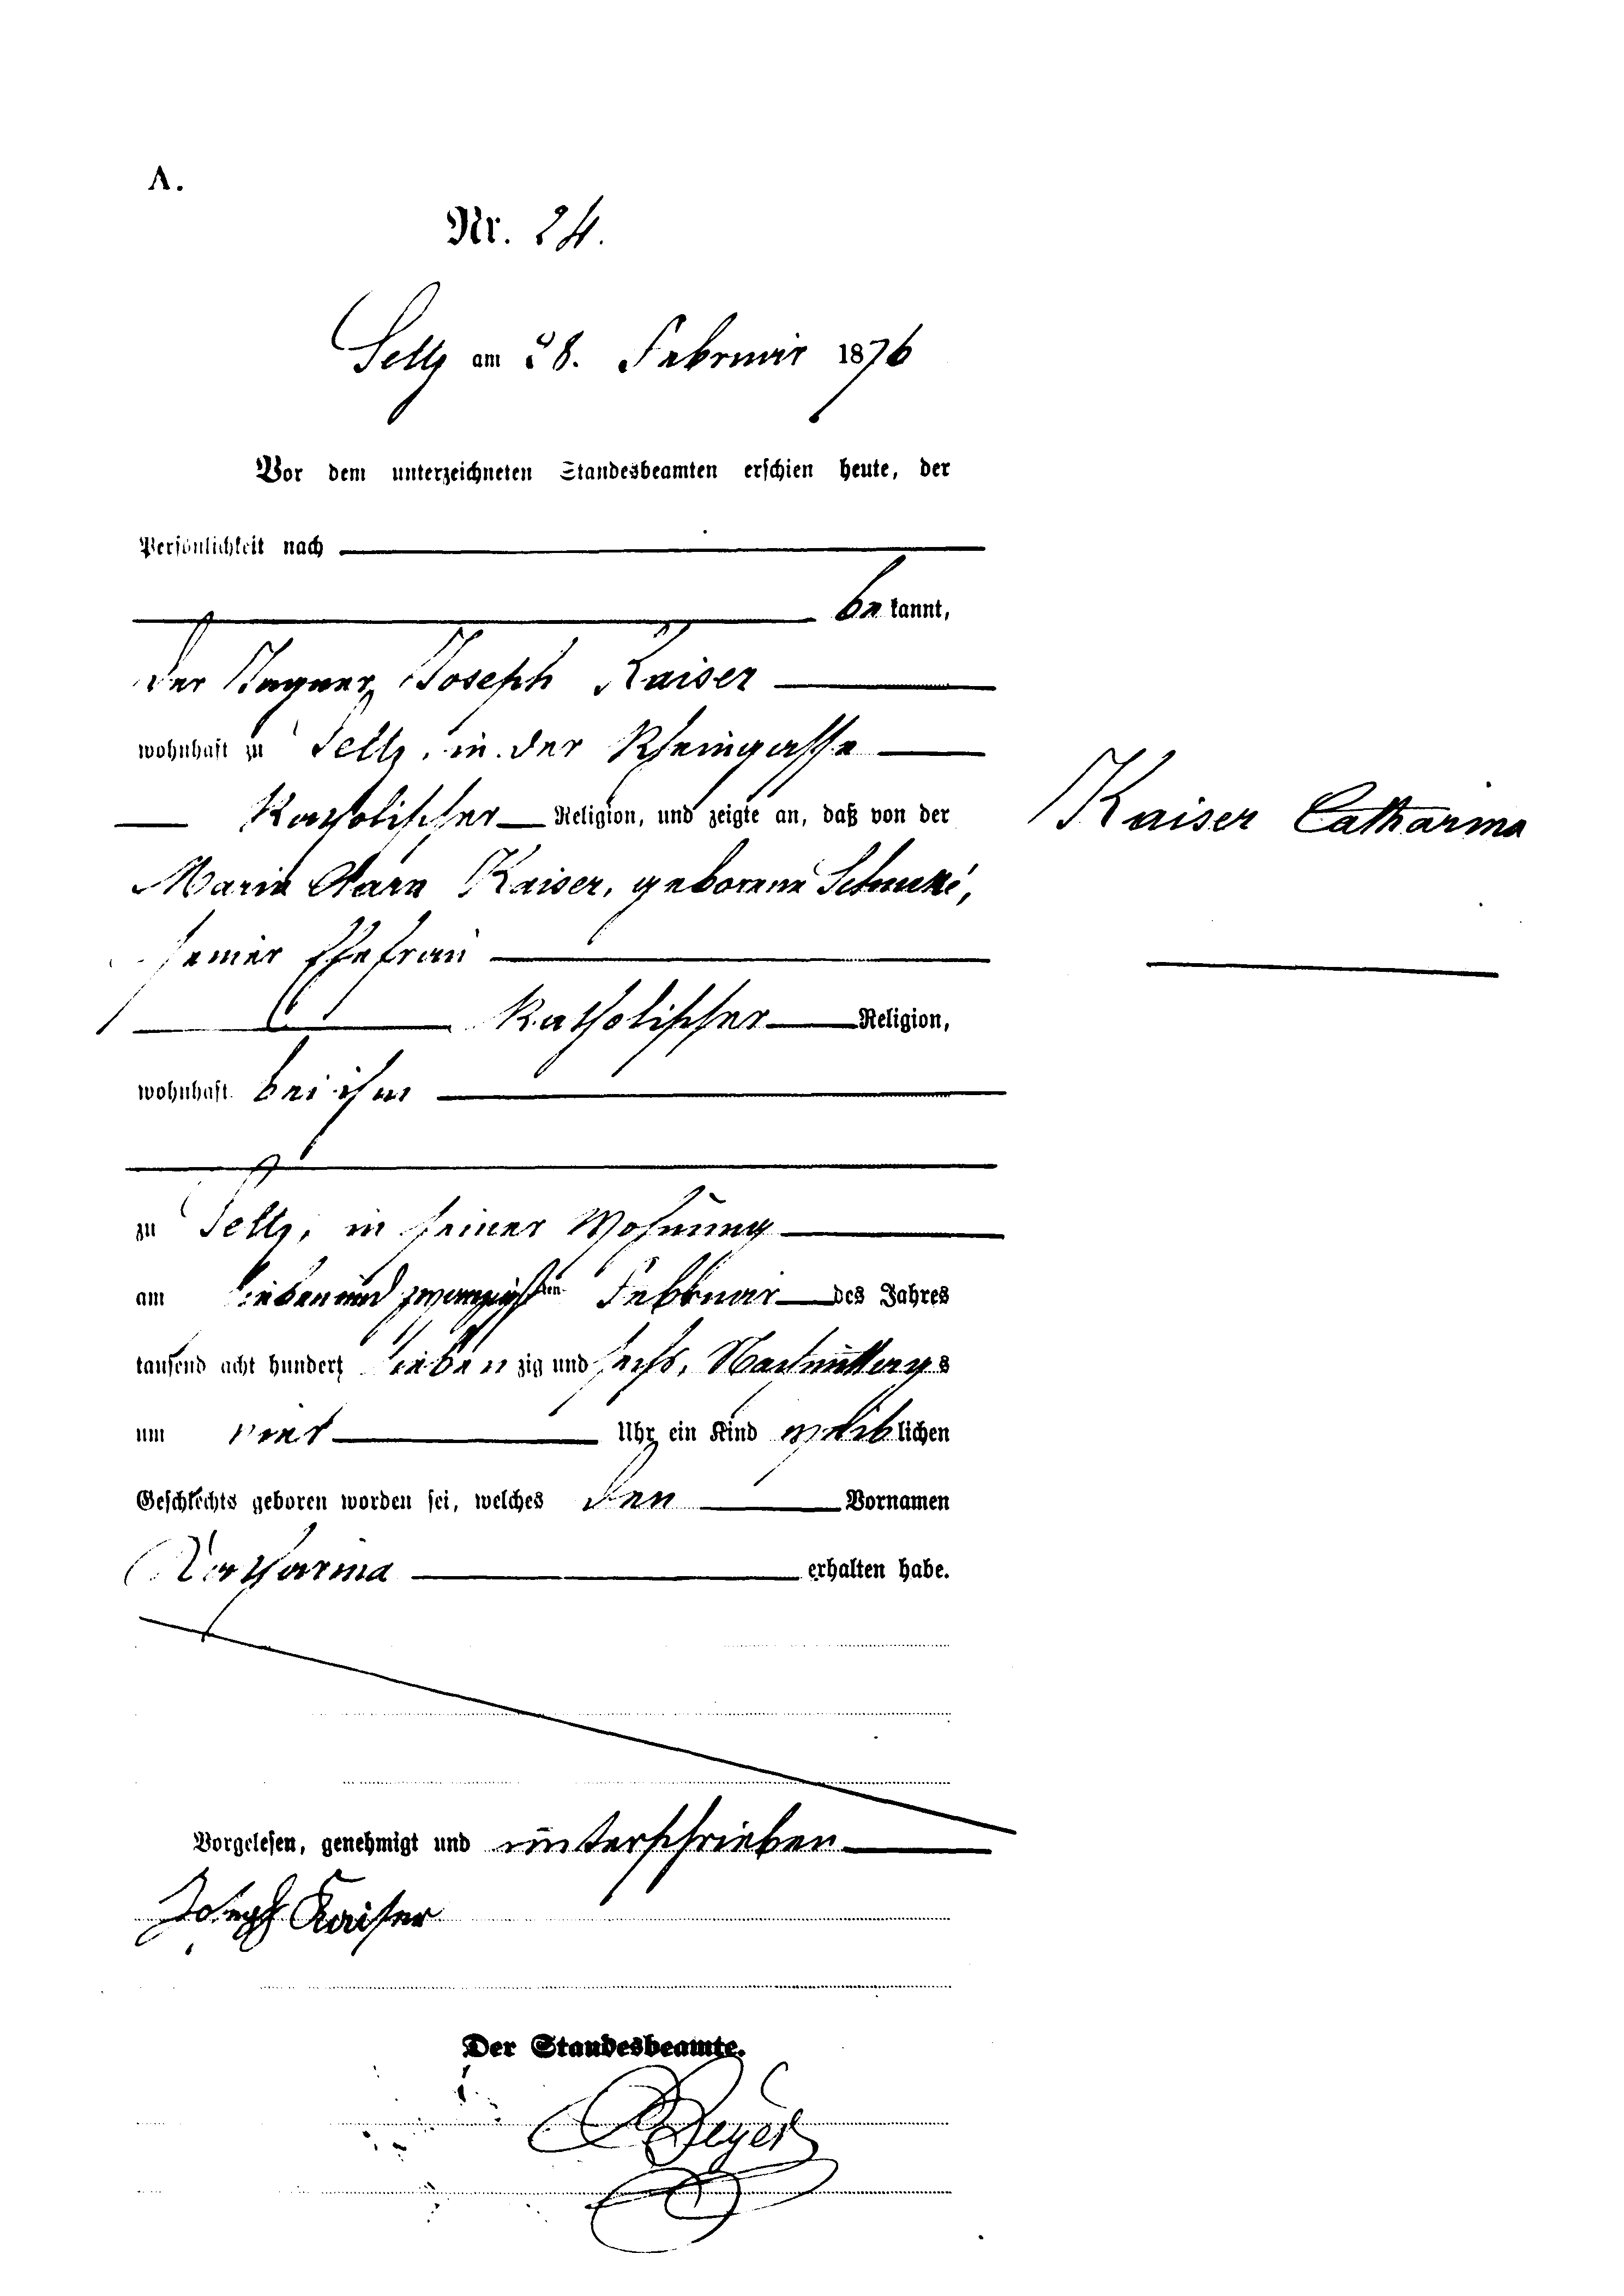 A.
Nr. 24.
Seltz am 28. Februar 1876
Vor dem unterzeichneten Standesbeamten erschien heute, der
Persönlichkeit nach
bekannt,
der Tagner Joseph Kaiser
wohnhaft zu Seltz, in der Rheingasse
Katholischer Religion, und zeigte an, daß von der
Kaiser Catharina
Maria Kaiser, geborene
seiner Ehefrau
Katholischer Religion,
wohnhaft bei ihm
zu Seltz, in seiner Wohnung
am siebenund zwanzigsten Februar des Jahres
tausend acht hundert siebenzig und sechs, Nachmittags
um vier Uhr ein Kind weiblichen
Geschlechts geboren worden sei, welches den Vornamen
Katharina erhalten habe.
Vorgelesen, genehmigt und unterschrieben
Joseph Kaiser
Der Standesbeamte.